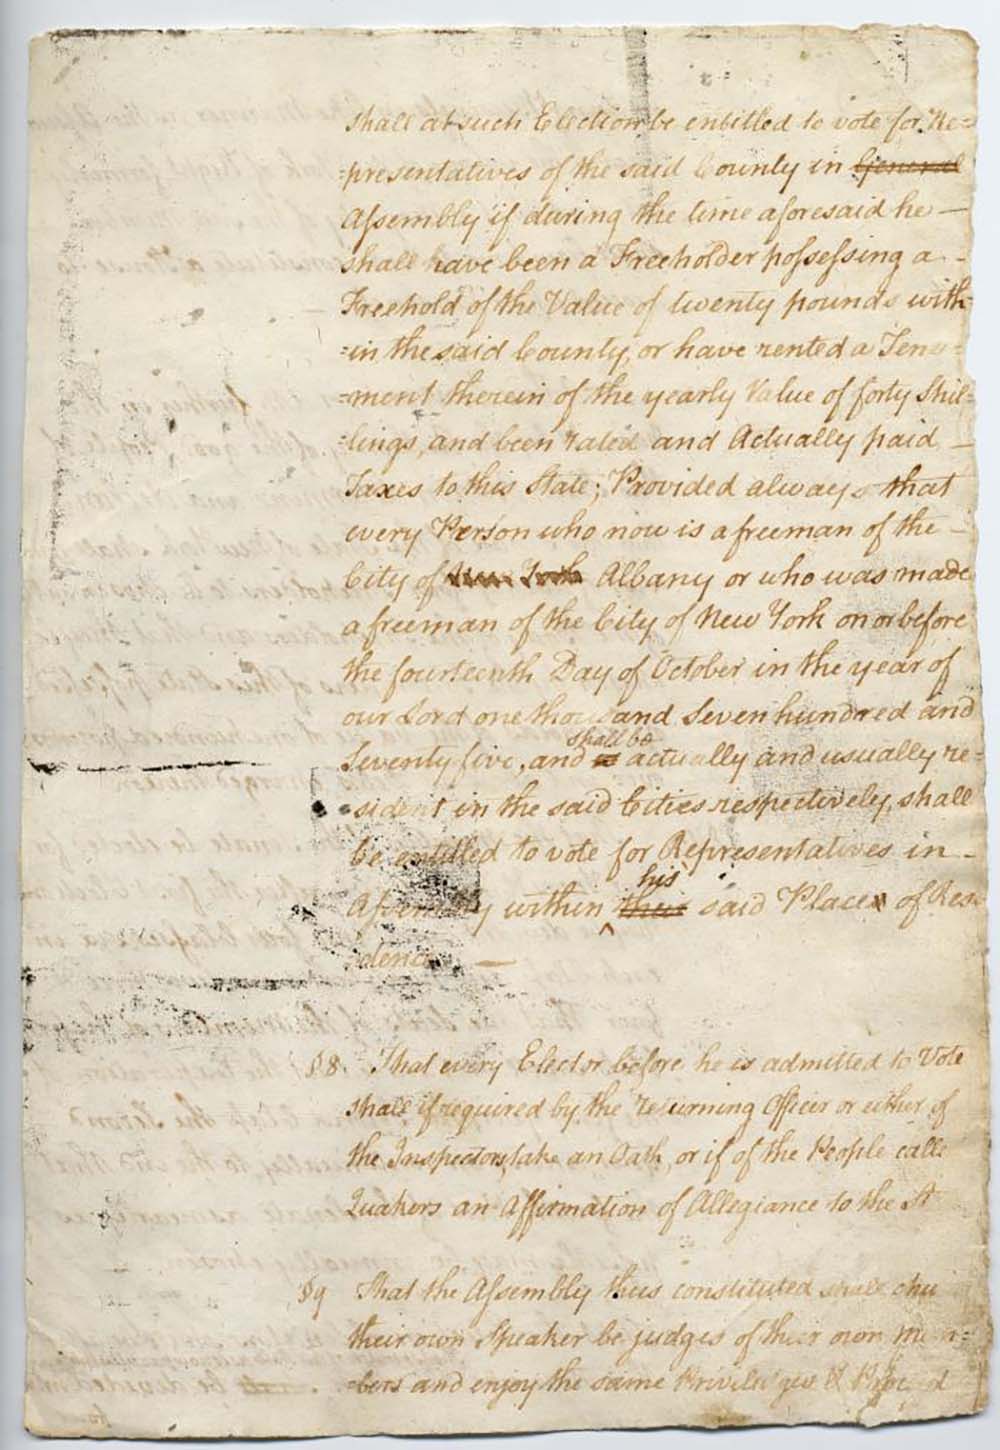 shall at such Election be entitled to vote for Re=
=presentatives of the said County in General
Assembly if during the time aforesaid he —
shall have been a Freeholder possessing a -
Freehold of the Value of twenty pounds with=
=in the said County, or have rented a Tene=
=ment therein of the yearly Value of forty Shil=
=lings, and been rated and Actually paid —
Taxes to this State; Provided always that
every Person who now is a freeman of the —
City of New York Albany or who was made
a freeman of the City of New York on or before
the fourteenth Day of October in the year of
our Lord one thousand Seven hundred and
shall be
Seventy five, and is actually and usually re=
=sident in the said Cities respectively, shall
be entitled to vote for Representatives in -
his
Assembly within their said Place of Resi
dence. —
§ 8. That every Elector before he is admitted to Vote
shall if required by the returning Officer or either of
the Inspectors, take an Oath, or if of the People calle
Quakers an Affirmation of Allegiance to the St
§ 9 That the Assembly thus constituted shall chu
their own Speaker be judges of their own mem=
=bers and enjoy the same Privileges & Proceed